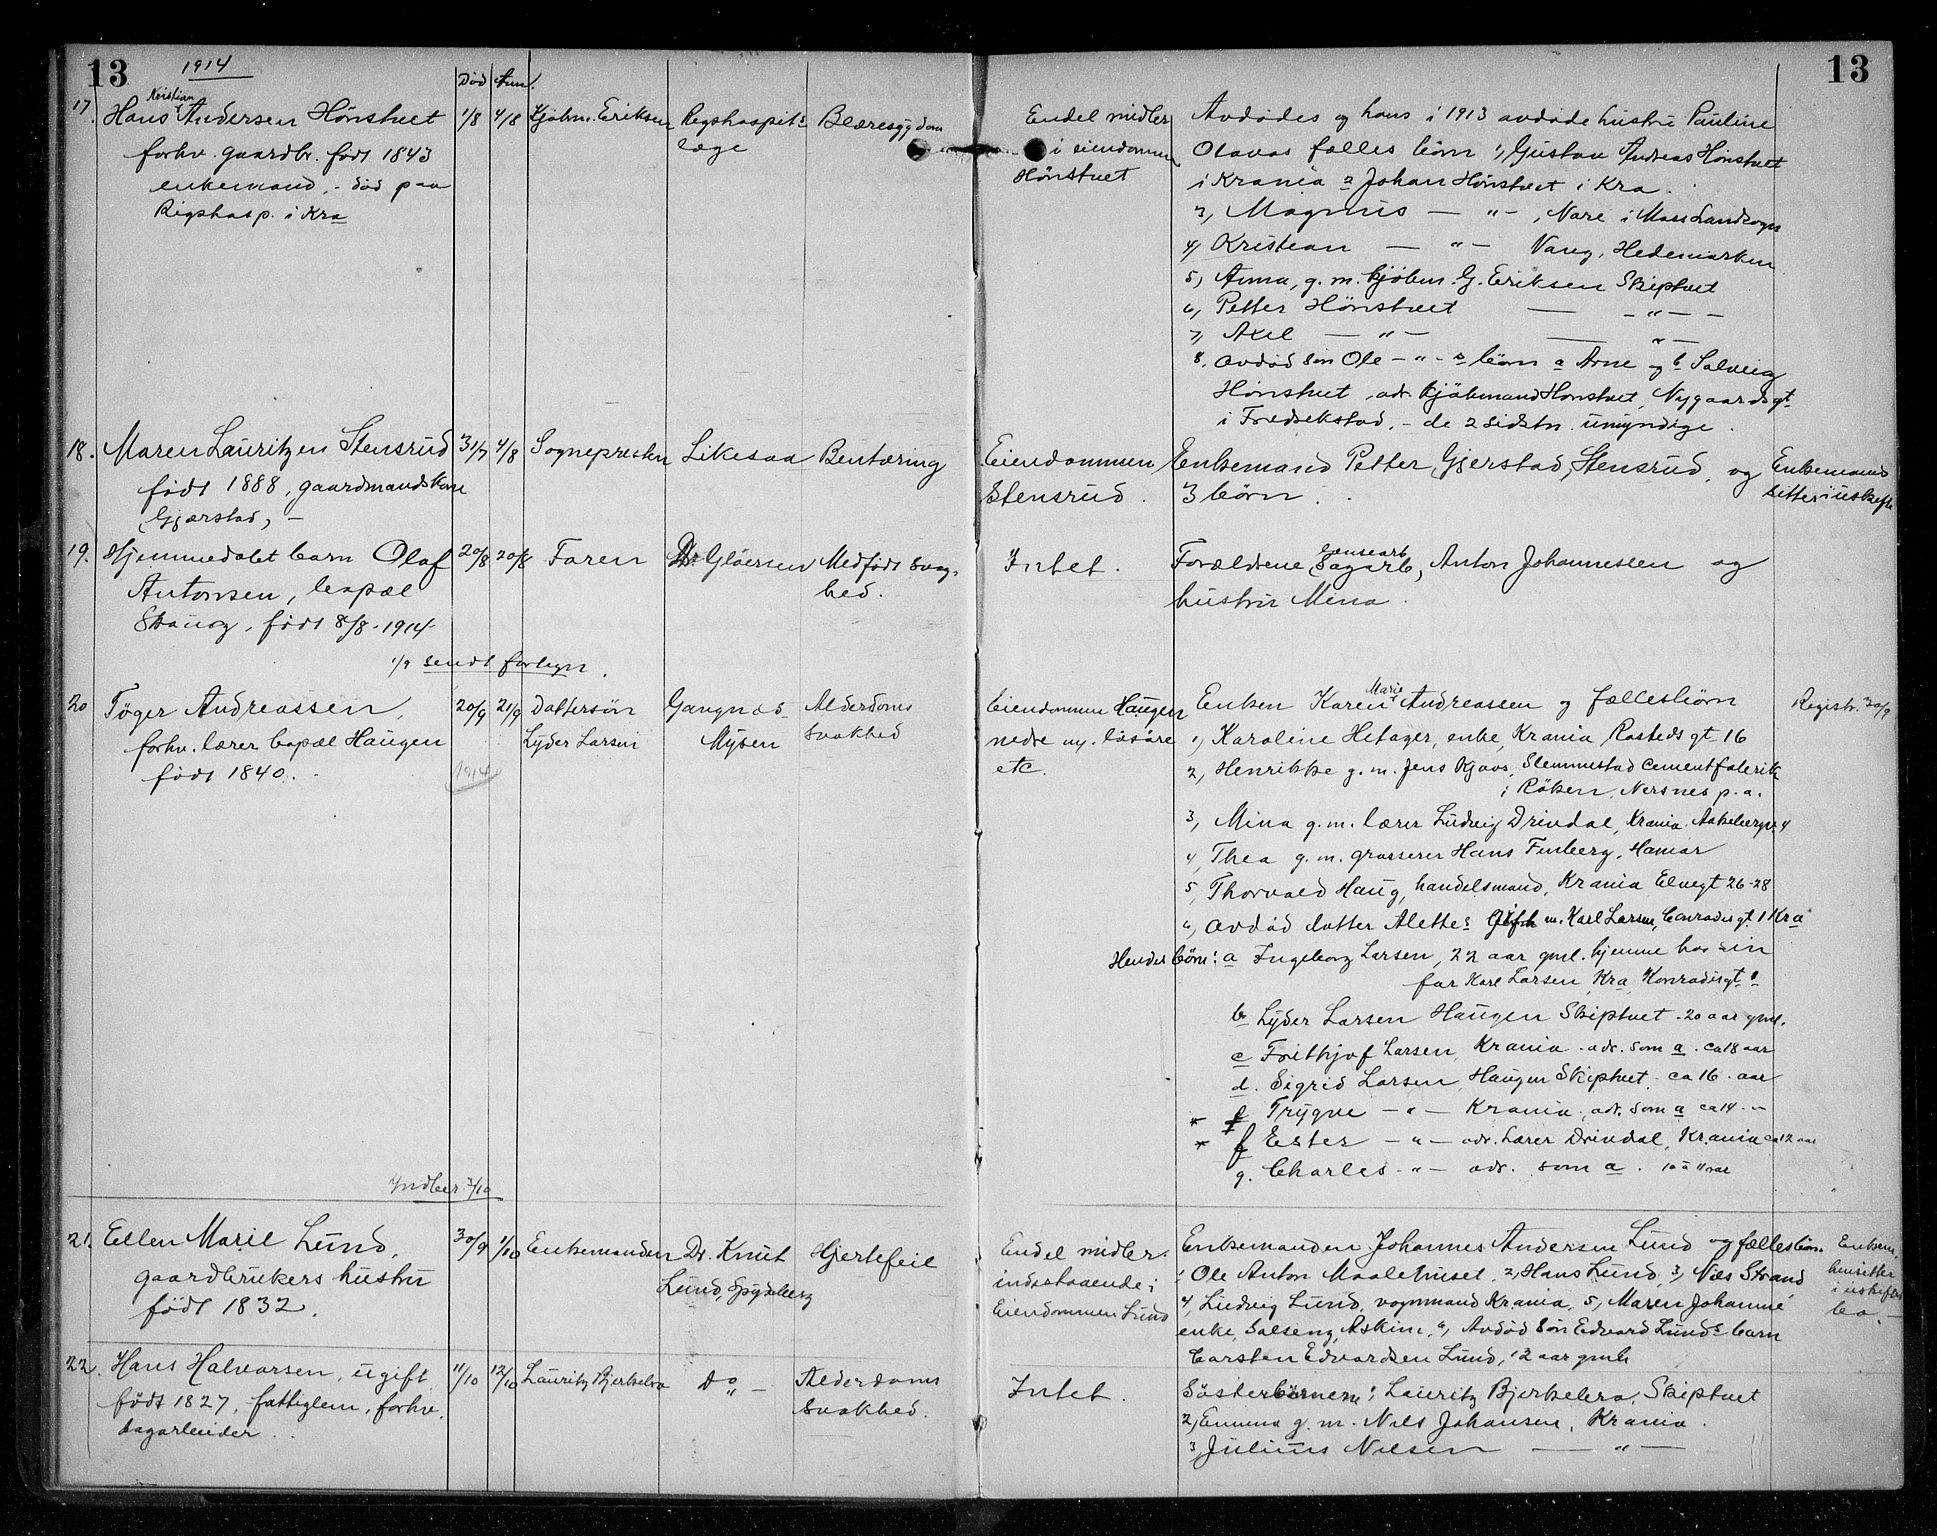 13
1914
Død Anm.
17. Hans Kristian Andersen Hønstvet
forhv. gaardbr. født 1843
enkemand, - død paa
Rigshosp. i Kra
1/8 4/8 Kjøbm. Eriksen
Rigshospits
læge
Blæresygdom
18. Maren Lauritzen Stensrud
født 1888, gaardmandskone
Gjerstad, -
31/7 4/8 Sognepresten Likesaa Bentæring
19. Hjemmedøbt barn Olaf
Antonsen, bopæl
Skaug, født 8/8-1914
20/8 20/8 Faren Dr. Gløersen Medfødt svag-
hed.
1/9 sendt
20 Tøger Andreassen,
forhv. lærer bopæl Haugen
født 1840.
1914
20/9 21/9 Dattersøn
Lyder Larsen
Gangnæs
Mysen
Alderdoms
svakhed
Indber. 7/10
21. Ellen Marie Lund,
gaardbrukers hustru
født 1832.
30/9 1/10 Enkemanden Dr. Knut
Lund, Spydeberg
Hjertefeil
22. Hans Halvorsen, ugift
født 1827, fattiglem, forhv.
dagarbeider.
11/10 12/10 Lauritz Bjerkebra Do " - Alderdoms
svakhed.
13
Endel midler
i eiendommen
Hønstvet
Avdødes og hans i 1913 avdøde hustru Pauline
Olavas fælles børn 1, Gustav Andreas Hønstvet
i Krania 2 Johan Hønstvet i Kra.
3, Magnus - " - , Nore i Moss Landsogn
4, Kristian - " - Vang, Hedemarken
5, Anna, g. m. kjøbm. G. Eriksen Skiptvet
6, Petter Hønstvet - - " - -
7, Axel - " - - " -
8. avdød søn Ole - " - s børn a Arne og b Solveig
Hønstvet, adr. kjøbmand Hønstvet, Nygaardsgt.
i Fredrikstad, - de 2 sidstn. umyndige.
Eiendommen
Stensrud.
Enkemand Petter Gjerstad, Stensrud, og
3 børn.
Enkemand
sitter i uskifte
Intet.
Forældrene Sagarb, Anton Johannessen og
hustru Mina.
Eiendommen Haugen
nedre og løsøre
etc.
Enken Karen Marie Andreassen og fællesbørn
1, Karoline Hetager, enke, Krania Rostedsgt 16
2, Henrikke g. m. Jens Kjøos, Slemmestad cementfabrik
i Røken, Nersnes p. a.
3, Mina g. m. lærer Ludvig Drindal, Krania Aakebergv. 4
4, Thea g. m. grosserer Hans Finberg, Hamar
5, Thorvald Haug, handelsmand, Krania Elvegt 26-28
6, avdød datter Alettes gift m. Karl Larsen, Conradisgt. 1 Kra
Hendes børn: a Ingeborg Larsen, 22 aar gml. hjemme hos sin
far Karl Larsen, Kra Konradisgt. 1
b Lyder Larsen Haugen Skiptvet 20 aar gml.
c Frithjof Larsen, Krania adr. som a. ca 18 aar
d. Sigrid Larsen, Haugen Skiptvet, ca 16 aar
* Trygve - " - Krania, adr. som a ca 14 - "
* f Ester - " - adr. Lærer Drindal, Krania ca 12 aar
g. Charles - " - adr. som a. 10 a 11 aar
Registr. 30/9
Endel midler
indestaaende i
Eiendommen Lund
Enkemanden Johannes Andersen Lund og fællesbørn
1 Ole Anton Maalehuset, 2, Hans Lund, 3, Nils Strand,
4, Ludvig Lund, vognmand Krania, 5, Maren Johanne
enke, Solseng, Askim, 6, Avdød søn Edvard Lunds barn
Carsten Edvardsen Lund, 12 aar gml.
Enkem.
hensitter
i uskiftet
bo. -
Intet.
Søsterbørnene: 1, Lauritz Bjerkebra, Skiptvet
2, Emma g. m. Nils Johansen, Krania.
3, Julius Nilsen - " -